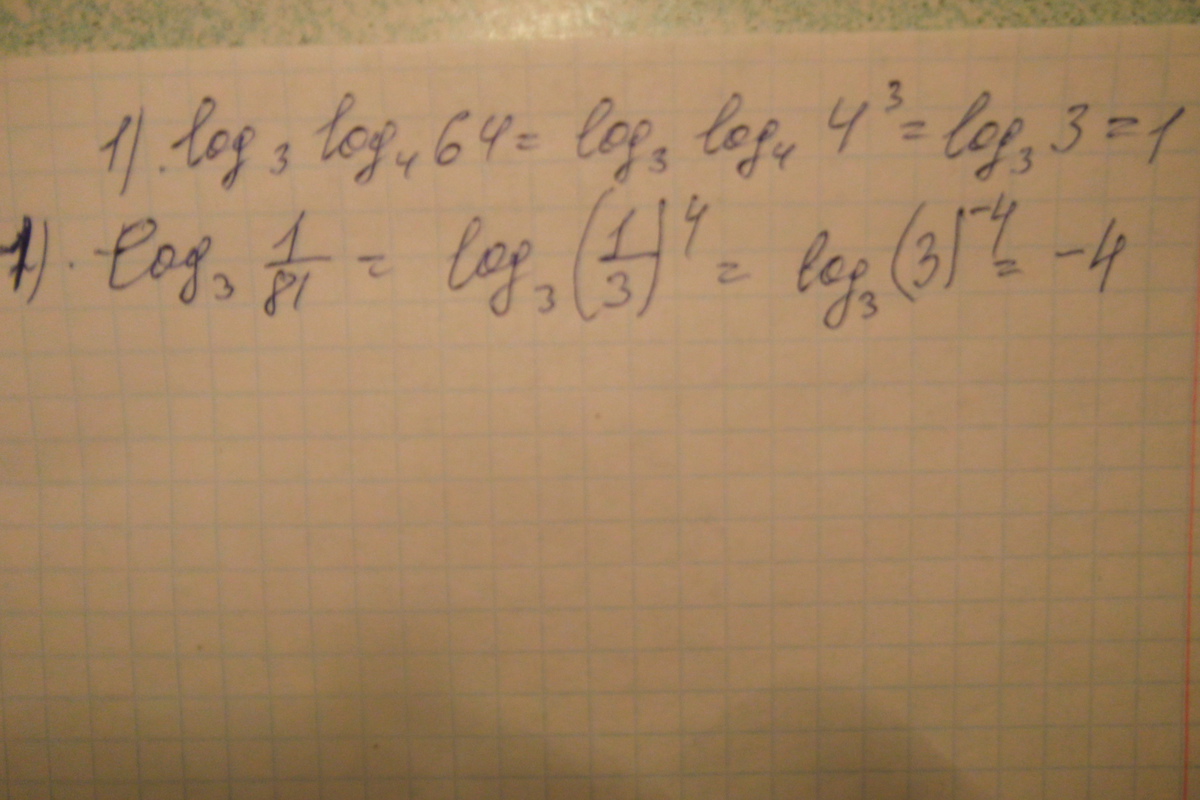 1). log₃ log₄ 64 = log₃ log₄ 4³ = log₃ 3 = 1
1). log₃ 1/81 = log₃ (1/3)⁴ = log₃ (3)⁻⁴ = -4